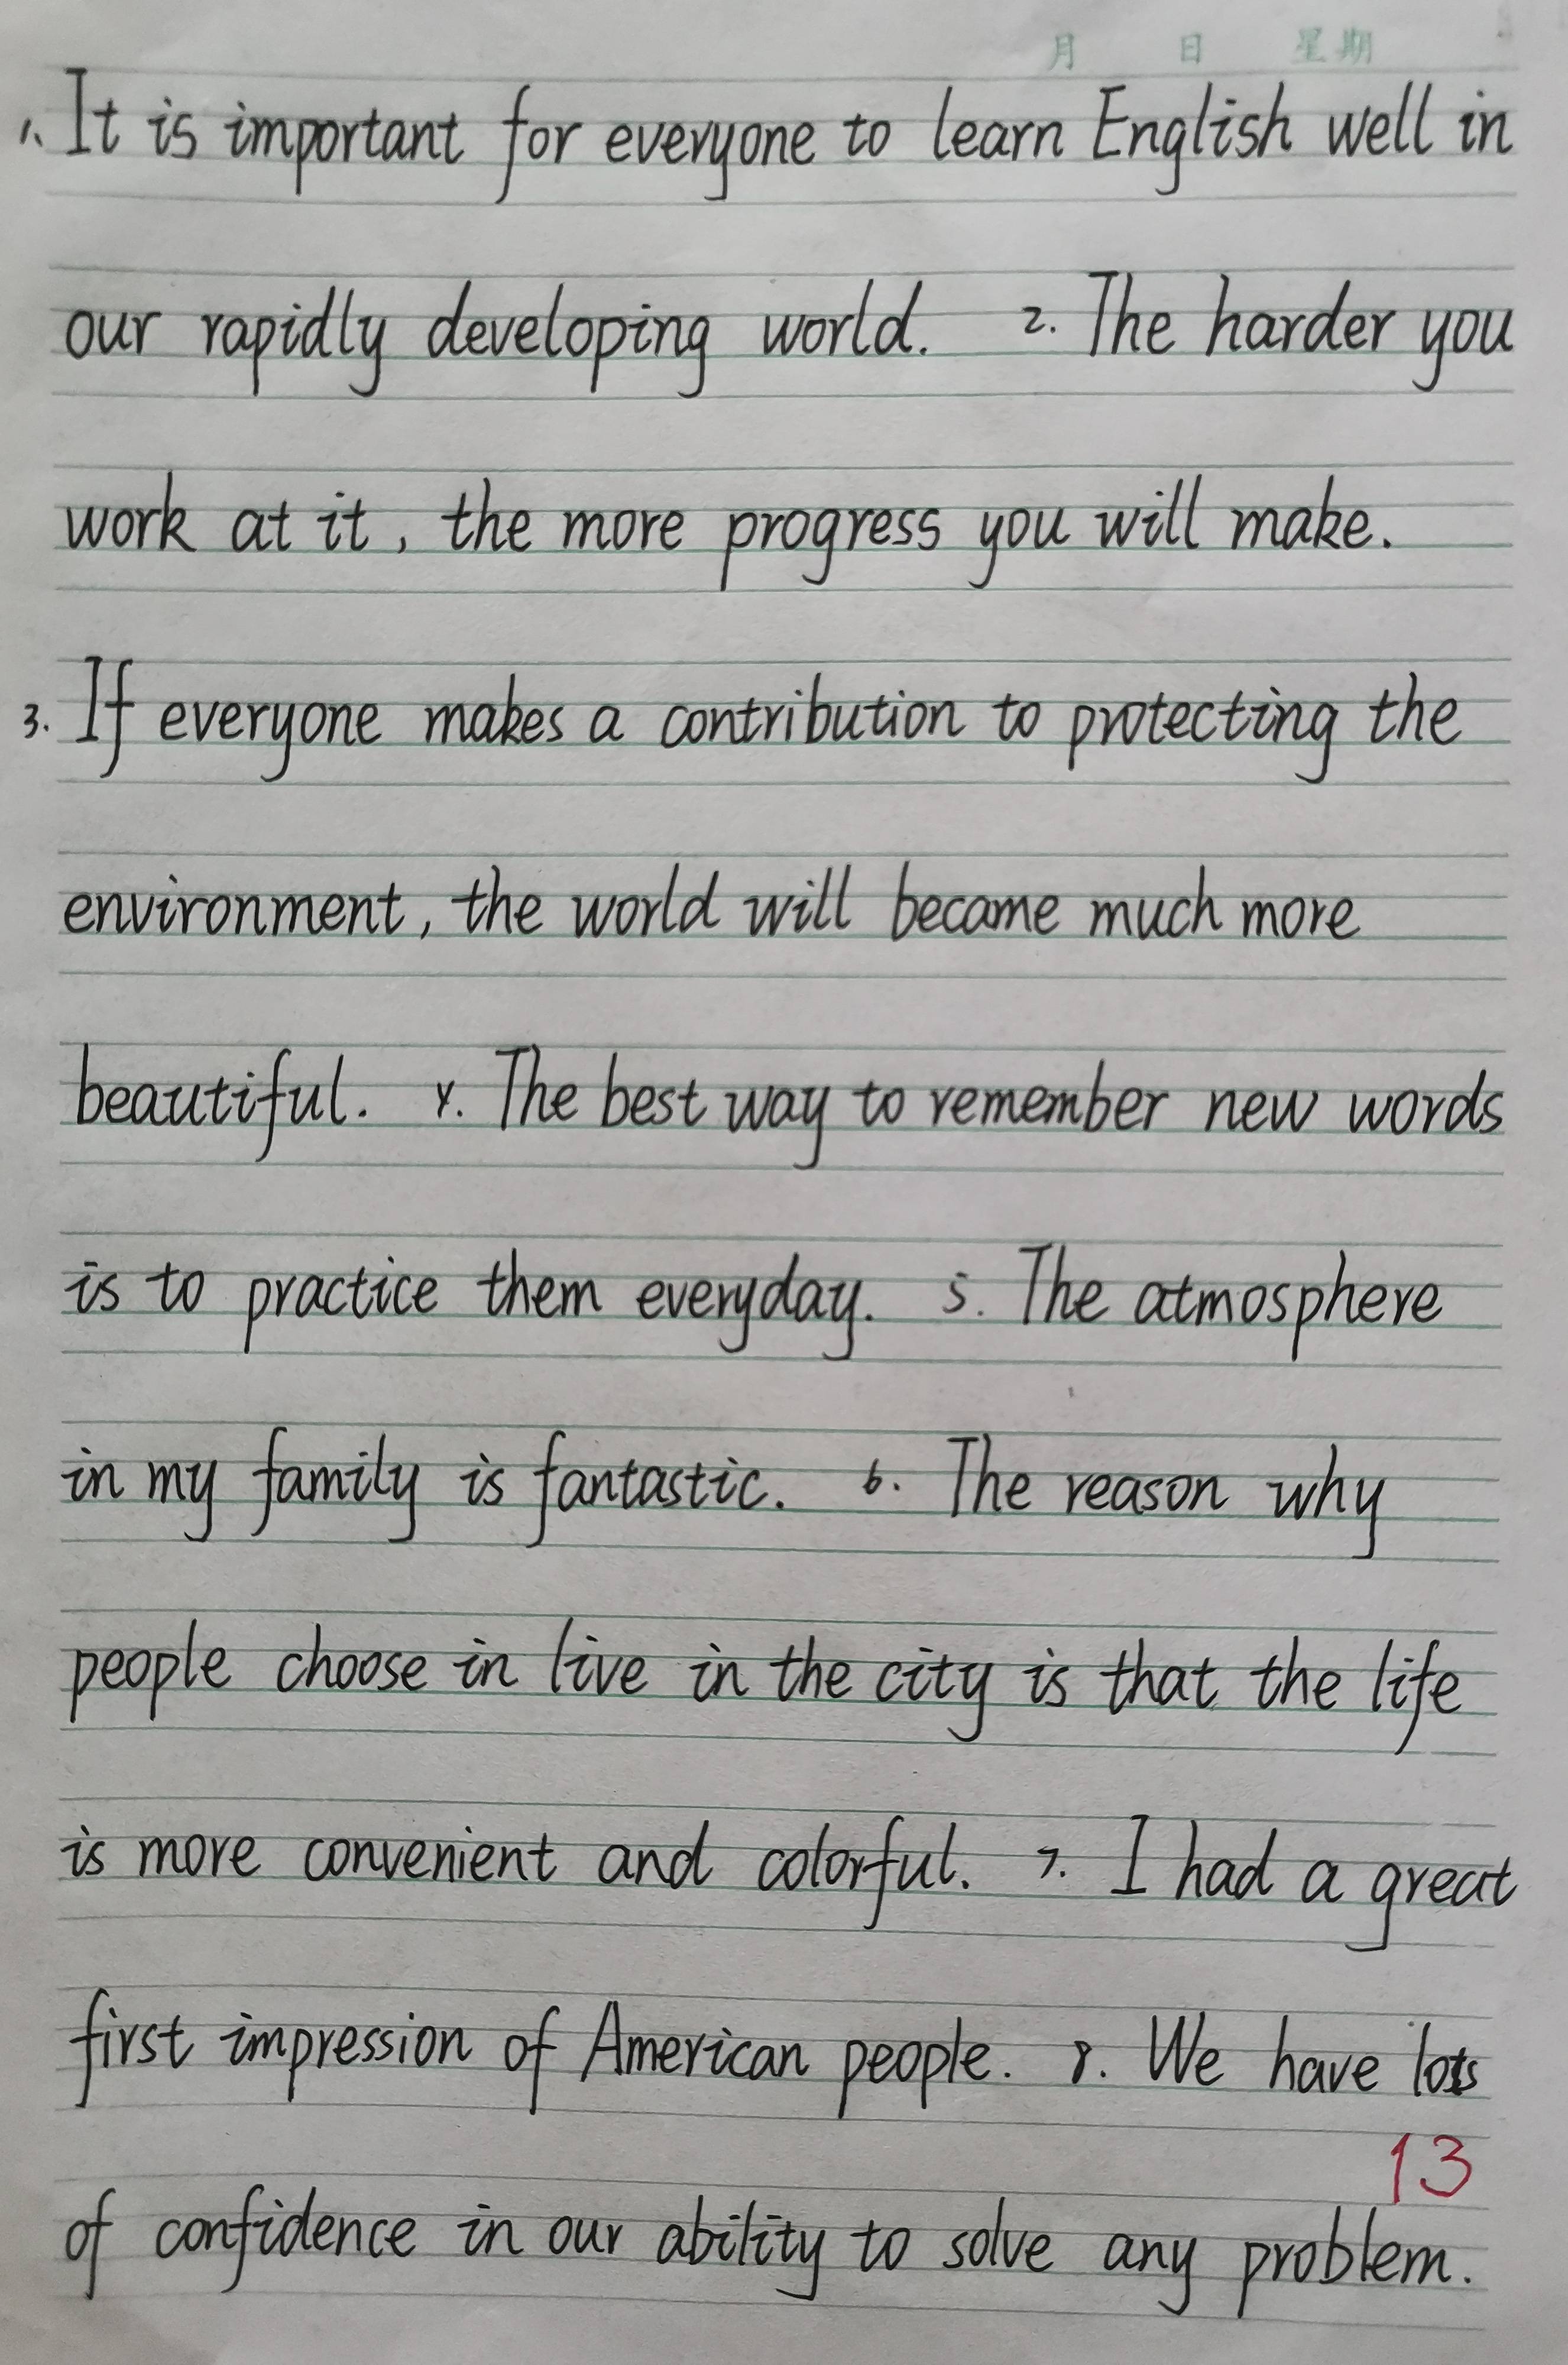 月 日 星期
1. It is important for everyone to learn English well in
our rapidly developing world. 2. The harder you
work at it, the more progress you will make.
3. If everyone makes a contribution to protecting the
environment, the world will became much more
beautiful. 4. The best way to remember new words
is to practice them everyday. 5. The atmosphere
in my family is fantastic. 6. The reason why
people choose in live in the city is that the life
is more convenient and colorful. 7. I had a great
first impression of American people. 8. We have lots
13
of confidence in our ability to solve any problem.